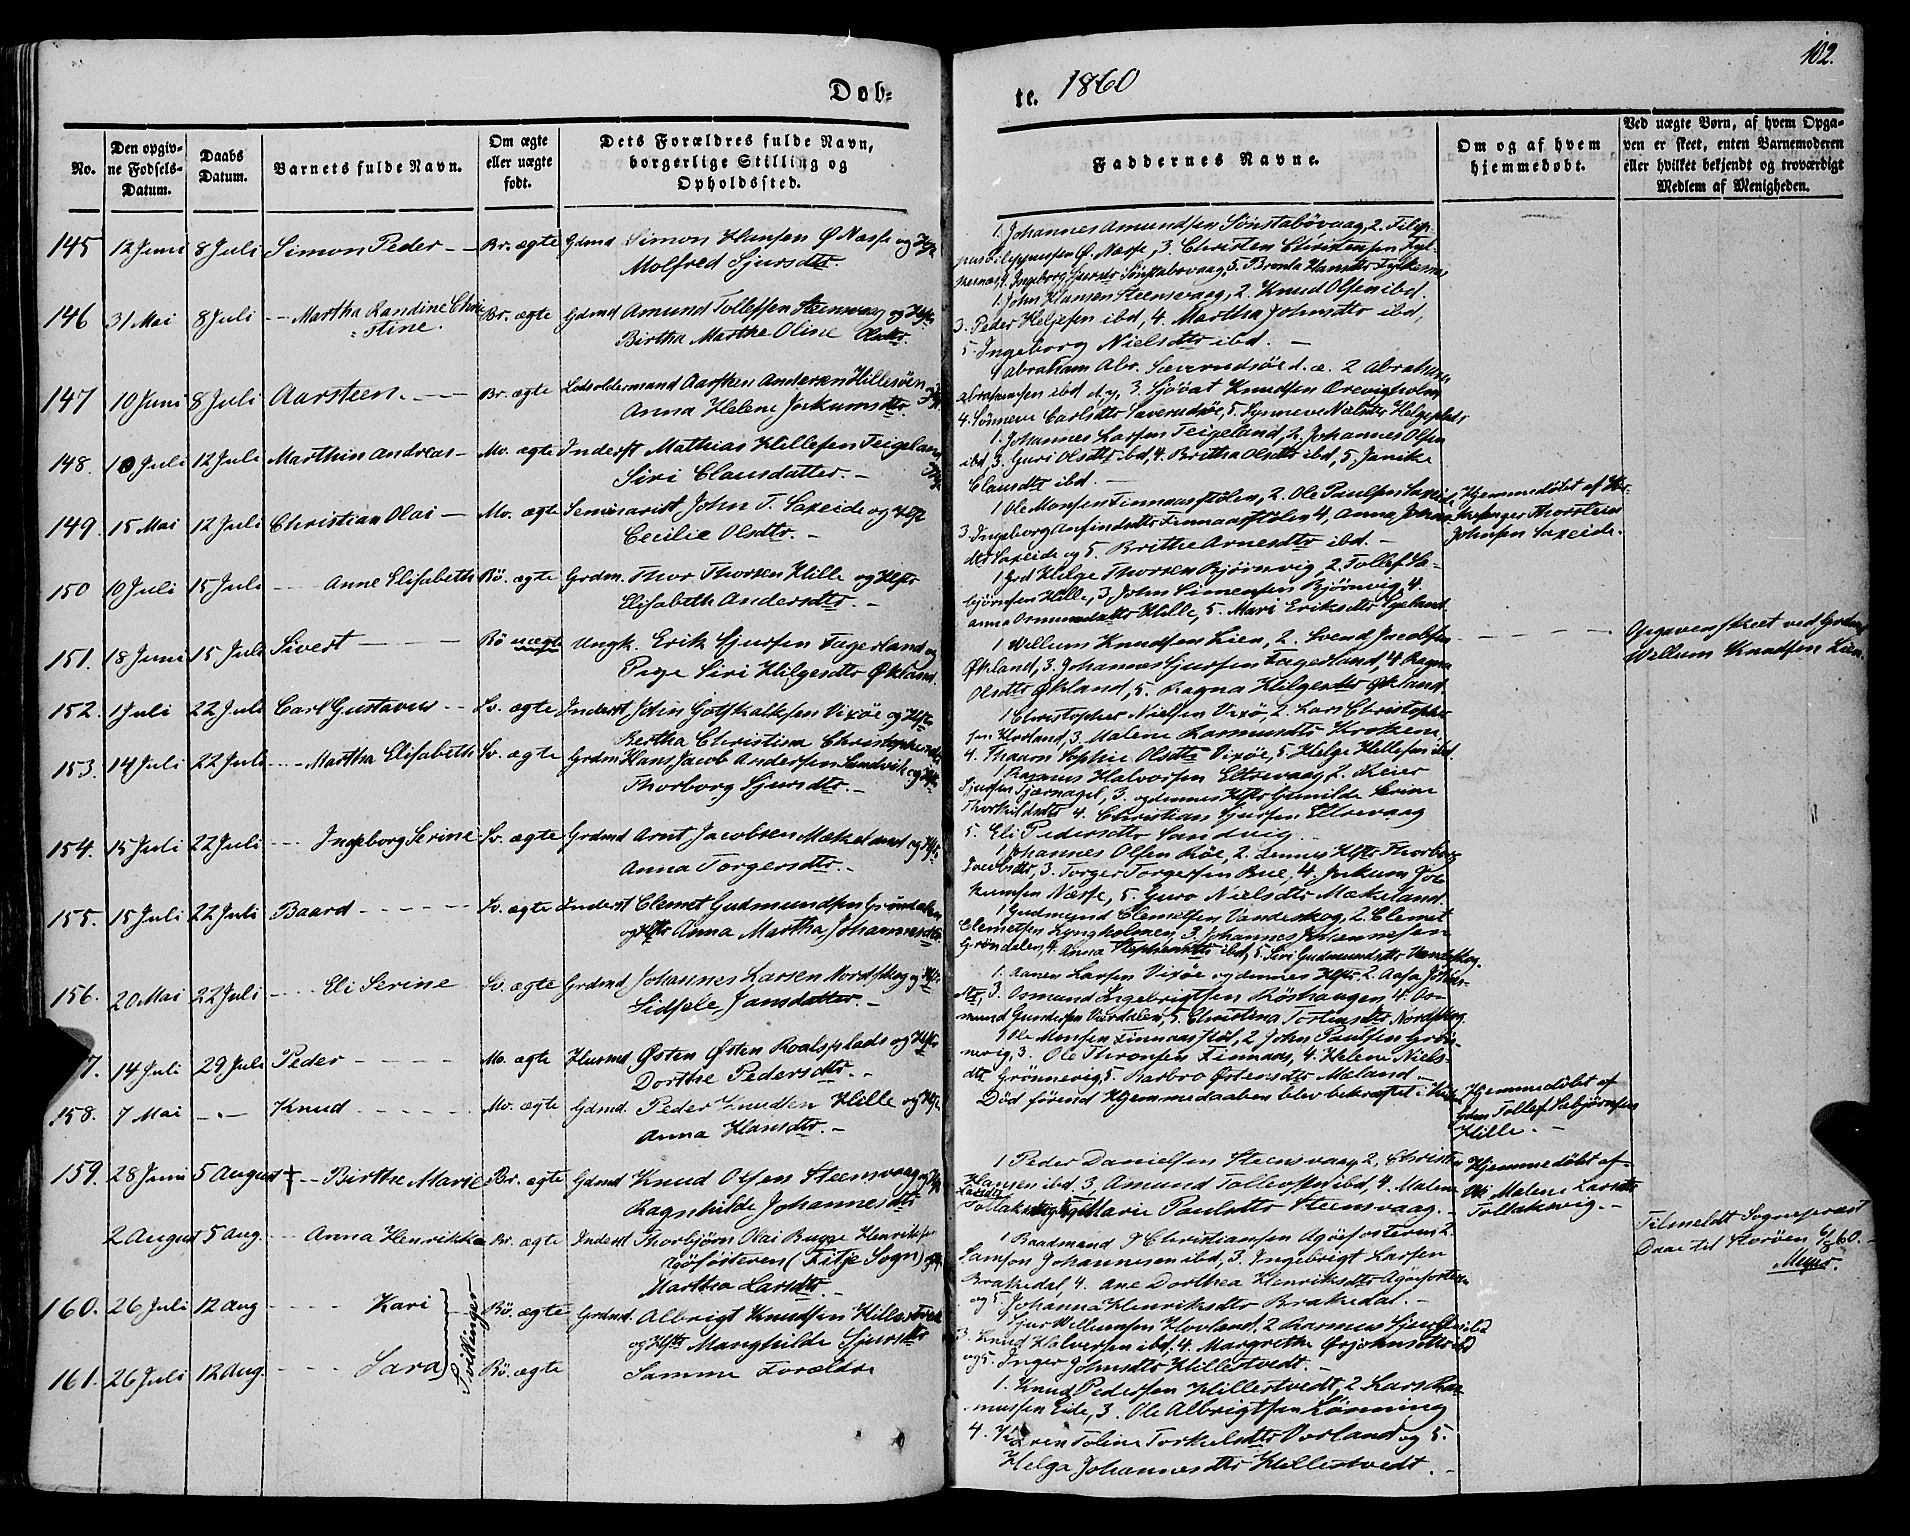 102.
Døb-
te. 1860
No.
Den opgiv-
ne Fødsels-
Datum.
Daabs
Datum.
Barnets fulde Navn.
Om ægte
eller uægte
født.
Dets Forældres fulde Navn,
borgerlige Stilling og
Opholdssted.
Faddernes Navne.
Om og af hvem
hjemmedøbt.
Ved uægte Børn, af hvem Opga-
ven er skeet, enten Barnemoderen
eller hvilket bekjendt og troværdigt
Medlem af Menigheden.
145 12 Juni 8 Juli Simon Peder Br. ægte Gdmd Simon Hansen Ø Næsse og
Molfred Sjursdtr.
1. Johannes Amundsen Sønstabøvaag, 2.
Ø. Næsse, 3 Christen Christensen
4. Ingeborg Sjursdtr Sønstabøvaag, 5. Brenta Hansdtr
146 31 Mai 8 Juli Martha Randine Chri-
stine. Br. ægte Gdmd Amund Tollefsen Steensvaag og Hst
Birtha Marthe Oline Olsdtr.
1. John Hansen Steensvaag, 2. Knud Olsen ibd.
3. Peder Heljesen ibd, 4. Martha Johnsdtr ibd,
5 Ingeborg Nielsdtr ibd.
147 10 Juni 8 Juli Aarsteen. Br. ægte Lodsoldermand Aarsten Andersen Hillesøen og
Anna Helene Jokumsdtr
1 Abraham Abr. d. æ. 2 Abraham
Abrahamsen ibd d. y, 3. Sjovat Knudsen
4. Sønneve Carlsdtr 5. Synneve
148. 10 Juli 12 Juli Marthin Andreas Mo. ægte Inderst Mathias Hillesen Teigeland
Siri Clausdatter.
1. Johannes Larsen Teigeland, 2. Johannes Olsen
ibd, 3. Guri Olsdtr ibd, 4. Britha Olsdtr ibd, 5. Janike
Clausdtr ibd.
149. 15 Mai 12 Juli Christian Olai Mo. ægte Seminarist John T. Saxeide og Hst
Cecilie Olsdtr.
1 Ole Monsen Finnaasstølen, 2. Ole Paulsen Saxeid
3. Ingeborg Anfindsdtr Finnaasstølen 4, Anna Johns
dtr Saxeide og 5. Brithe Arnesdtr ibd.
Hjemmedøbt af Kir-
kesanger Thorsten
Johnsen Saxeide.
150 10 Juli 15 Juli Anne Elisabeth Bø. ægte Grdm. Thor Thorsen Hille og Hst
Elisabeth Andersdtr.
1 Grd Helge Thorsen Bjørnvig, 2. Tollef Sæ-
bjørnsen Hille, 3 John Simensen Bjørnvig, 4.
Anna Osmundsdtr Hille, 5. Mari Eriksdtr
151. 18 Juni 15 Juli Sivert Bø uægte Ungk. Erik Sjursen Fagerland og
Pige Siri Helgesdtr Økland.
1 Willum Knudsen Lien, 2. Svend Jacobsen
Økland, 3. Johannes Sjursen Fagerland, 4 Ragna
Olsdtr Økland, 5. Ragna Helgesdtr Økland.
Opgaven skeet ved Grdmd
Willum Knudsen Lien.
152. 1 Juli 22 Juli Carl Gustavus Sv. ægte Inderst John Gotskalksen Vixøe og Hst
Bertha Christina Christophersdtr
1 Christopher Nielsen Vixø, 2. Lars Christopher
sen Hovland, 3. Malene Rasmusdtr Kroken,
4. Thaarn Sophie Olsdtr Vixøe, 5. Helge Hellesen ibd.
153. 14 Juli 22 Juli Martha Elisabeth Sv. ægte Grdm Hans Jacob Andersen Sandvik og Hst
Thorborg Sjursdtr.
1 Rasmus Halvorsen Eltrevaag, 2. Reier
Sjursen Tjernagel, 3. og dennes Hst Gunilde Serine
Thorkildsdtr 4. Christian Sjursen Eltrevaag
5. Eli Pedersdtr Sandvig
154. 15 Juli 22 Juli Ingeborg Serine Sv. ægte Grdmd Arnt Jacobsen Mækeland og Hst
Anna Torgersdtr.
1 Johannes Olsen Røe, 2. dennes Hst Thorborg
Jacobsdtr, 3. Torger Torgersen Bue, 4. Jockum Joc
kumsen Næsse, 5. Guro Nielsdtr Mækeland.
155. 15 Juli 22 Juli Baard Sv. ægte Inderst Clemet Gudmundsen Grøndalen
og Hst Anna Martha Johannesdtr
1 Gudmund Clemetsen Vandeskog, 2. Clemet
Clemetsen Lyngholmen, 3. Johannes Johannessen
Grøndalen, 4. Anna Stephensdtr ibd, 5. Siri Gudmundsdtr Vandeskog.
156. 20 Mai 22 Juli Eli Serine Sv. ægte Grdmd Johannes Larsen Nordskog og Hst
Sidsele Jansdatter.
1. Aanen Larsen Vixøe og dennes Hst 2. Aasa Johns-
dtr, 3. Osmund Ingebrigtsen Røshaugen 4. Os-
mund Gundersen Vierdalen, 5. Christina Tostensdtr Nordskog.
7. 14 Juli 29 Juli Peder Mo. ægte Husmd Østen Østen Roalsplads og Hst
Dorthe Pedersdtr.
1 Ole Monsen Finnaasstøl, 2 John Paulsen Grøn-
nevig, 3. Ole Thronsen Finnaas, 4. Helene Niels-
dtr Grønnevig, 5. Barbro Østensdtr Mæland
158. 7 Mai Knud Mo. ægte Gdmd. Peder Knudsen Hille og Hst
Anna Hansdtr.
Død førend Hjemmedaaben blev bekræftet i Kirken
Hjemmedøbt af
Gdm Tollef Sæbjørnsen
Hille.
159. 28 Juni 5 August + Birthe Marie Br. ægte Gdmd Knud Olsen Steensvaag og Hst
Ragnhilde Johannesdtr
1 Peder Danielsen Steensvaag, 2. Christen
Hansen ibd 3. Amund Tollevsen ibd, 4. Malene
Larsdtr
Tollaksvig, 5. Marie Paulsdtr Steensvaag.
Hjemmedøbt af
Malene Larsdtr
Tollaksvig.
2 August 5 Aug. Anna Henrikka Br. ægte Inderst Thorbjørn Olai Bugge Henriksen
(Fitje Sogn) og Hst
Martha Larsdtr.
1 Baadmand P Christiansen 2
Samson Johannesen ibd, 3. Ingebrigt Larsen
Brakedal, 4. Ane Dorthea Henriksdtr
og 5. Johanna Henriksdtr Brakedal.
Tilmeldt Sognepræst
Daae til Storøen 6/8 60.
Meyer.
160. 26 Juli 12 Aug Kari Bø. ægte Grdmd. Albrigt Knudsen Hillestvedt
og Hst Manghilde Sjursdtr
Sjur Willumsen Hovland, 2 Rasmus Sjursen ibd
3. Knud Halversen ibd, 4. Margrethe Ørjohnsdtr ibd
og 5. Inger Johnsdtr Hillestvedt.
Tvillinger
161. 26 Juli 12 Aug. Sara Bø. ægte Samme Forældre
1. Knud Pedersen Hillestvedt, 2 Lars Ras-
mussen Eide, 3. Ole Albrigtsen Lønning
4. Karen Toline Torkelsdtr Vorland og 5.
Helga Johannesdtr Hillestvedt.